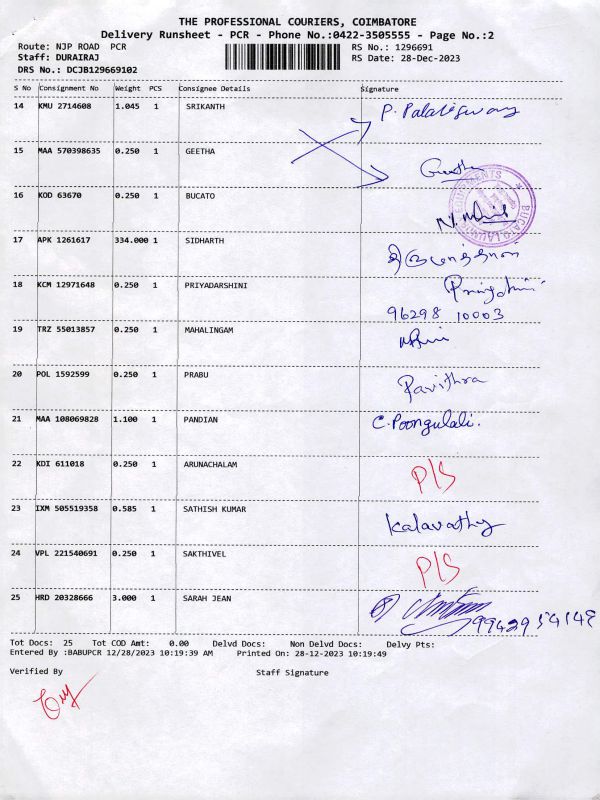 THE PROFESSIONAL COURIERS, COIMBATORE
Delivery Runsheet - PCR - Phone No.:0422-3505555 - Page No.:2
Route: NJP ROAD PCR
RS No.: 1296691
Staff: DURAIRAJ
RS Date: 28-Dec-2023
DRS No.: DCJB129669102
S No Consignment No Weight PCS Consignee Details Signature
14 KMU 2714608 1.045 1 SRIKANTH
15 MAA 570398635 0.250 1 GEETHA Geetha
16 KOD 63670 0.250 1 BUCATO
17 APK 1261617 334.000 1 SIDHARTH
18 KCM 12971648 0.250 1 PRIYADARSHINI
96298 10003
19 TRZ 55013857 0.250 1 MAHALINGAM
20 POL 1592599 0.250 1 PRABU Pavithra
21 MAA 108069828 1.100 1 PANDIAN C. Poongulali.
22 KDI 611018 0.250 1 ARUNACHALAM P/S
23 IXM 505519358 0.585 1 SATHISH KUMAR Kalavathy
24 VPL 221540691 0.250 1 SAKTHIVEL P/S
25 HRD 20328666 3.000 1 SARAH JEAN
Tot Docs: 25 Tot COD Amt: 0.00 Delvd Docs: Non Delvd Docs: Delvy Pts:
Entered By :BABUPCR 12/28/2023 10:19:39 AM Printed On: 28-12-2023 10:19:49
Verified By Staff Signature